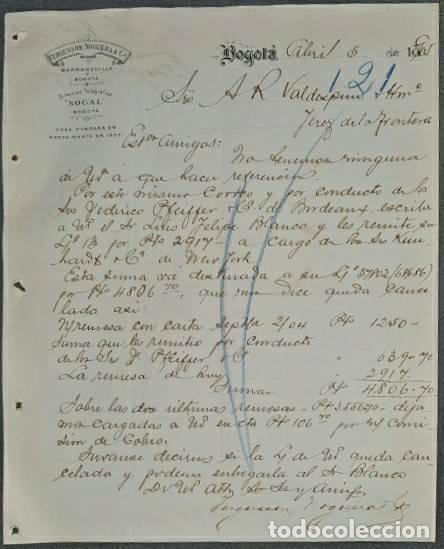 FERGUSSON NOGUERA & CA.
BARRANQUILLA
BOGOTÁ
Dirección Telegráfica
"NOGAL"
BOGOTÁ
CASA FUNDADA EN
SANTA MARTA EN
Bogotá, Abril 5 de
121
A R Valdespino & Hmo
Jerez de la Frontera
Amigos:
No tenemos ninguna
de Ud a que hacer referencia
Por este mismo Correo y por conducto de los
Federico Pfeiffer & Ca de Bordeaux, escribe
a Ud el Sr Luis Felipe Blanco, y les remite su
13 por Pts 2917- a cargo de los Srs
& Ca de New York.
Esta suma va destinada a su
por Pts 4806.70, que nos dice queda cance
lada así:
remesa con carta Septbe 2/04 Pts 1250-
Suma que les remitió por conducto
de los Sr F. Pfeiffer & Ca " 639-70
La remesa de hoy " 2917-
Suman Pts 4.806-70
Sobre las dos últimas remesas - Pts 3556.70 - deja
mos cargadas a Ud en cta Pts 106.70 por
de Cobro.
Sirvanse decirnos si la de Ud queda can
celada y podemos entregarla al Sr Blanco
De Ud
Fergusson Noguera & Ca
todocoleccion